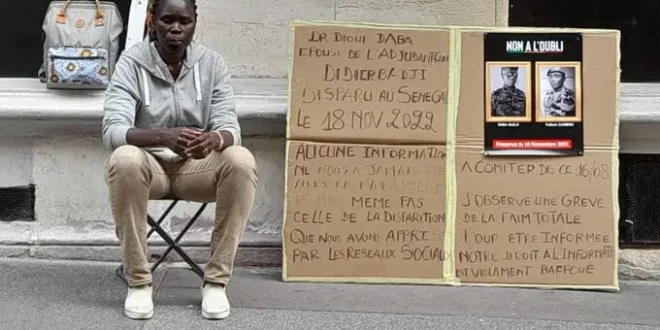 DR DIOUF DABA
EPOUSE DE L'ADJUDANT
DIDIER BADJI
DISPARU AU SENEGAL
LE 18 NOV 2022
AUCUNE INFORMATION
NE NOUS A JAMAIS
MEME PAS
CELLE DE LA DISPARITION
QUE NOUS AVONS APPRIS
PAR LES RESEAUX SOCIAUX
NON A L'OUBLI
A COMPTER DE CE 16/08
J'OBSERVE UNE GREVE
DE LA FAIM TOTALE
POUR ETRE INFORMEE
NOTRE DROIT A L'INFORMATI
EST VIOLAMENT BAFFOUE